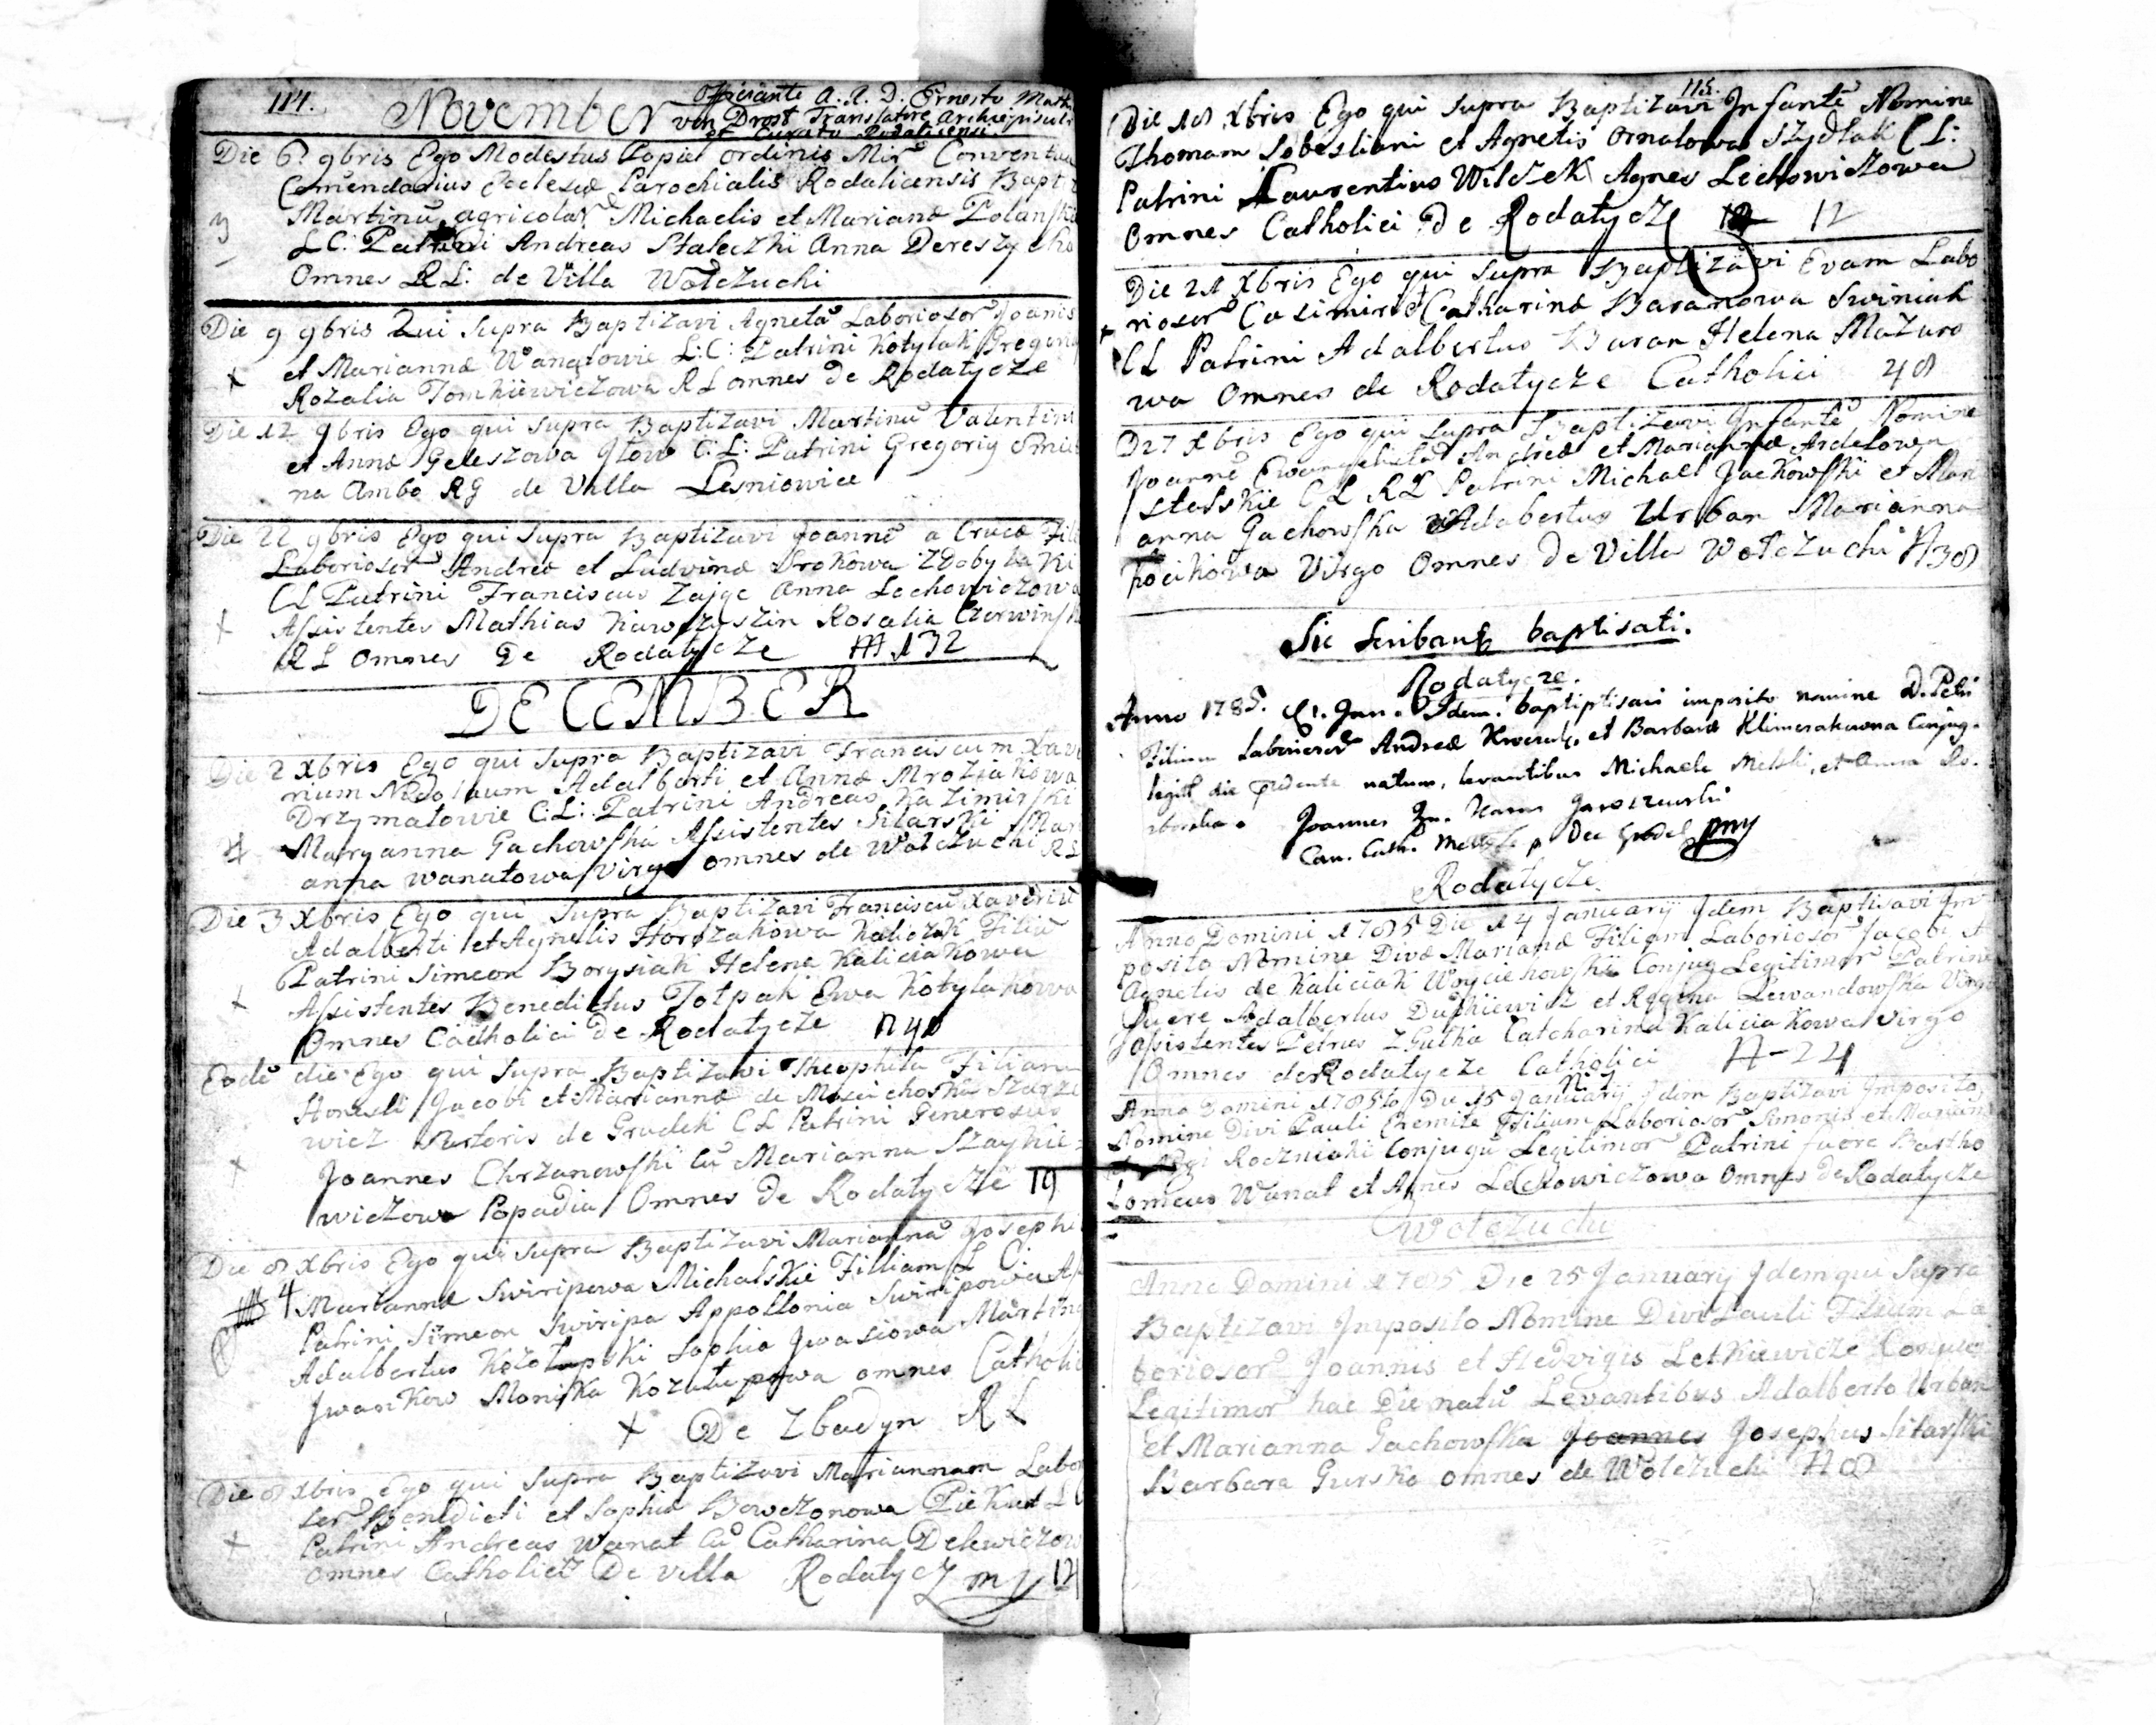 114.
November
Officiante A. R. D. Ernesto Math
von Drost Translatore Archiepiscoli
et Curato Rodaticensi
Die 6ta 9bris Ego Modestus Popiel ordinis Mir Conventua
Comendarius Ecclesiæ Parochialis Rodaticensis Bapti
3 Martinū agricolar Michaelis et Mariannæ Polanska
LC: Patrini Andreas Stateczki Anna Dereszycka
Omnes RL: de Villa Wotczuchi
Die 9 9bris Qui Supra Baptizavi Agnetā Laboriosor Joanis
et Mariannæ Wanatowie L:C: Patrini Kotylak Gregori
Rozalia Tomkiewiczowa RL omnes de Rodatycze
Die 12 9bris Ego qui Supra Baptizavi Martinū Valentini
et Annæ Geleszowa C:L: Patrini Gregoriy
na Ambo RG de Villa Lesniowice
Die 22 9bris Ego qui Supra Baptizavi Joannē a Cruce Fili
Laboriosor Andreæ et Ludvinæ Srokowa Zdobylaki
CL Patrini Franciscus Zajac Anna Lechowiczowa
Assistentes Mathias Rosalia Czerwinska
RL Omnes De Rodatycze N 132
DECEMBER
Die 2 Xbris Ego qui Supra Baptizavi Franciscum Xave
rium Adalberti et Annæ Mroziakowa
Drzymatowie C:L: Patrini Andreas Kazimirski
Maryanna Gachowska Assistentes Sitarski Mari
anna Wanatowa Virgo omnes de Wotczuchi RL
Die 3 Xbris Ego qui Supra Baptizavi Franciscū Xaveriū
Adalberti et Agnetis Kaliczak Filiū
Patrini Simeon Borysiak Helena Kaliciakowa
Assistentes Benedictus Totpak Ewa Kotylakowa
Omnes Catholici De Rodatycze N 40
Eodē die Ego qui Supra Baptizavi Theophila Filiam
Honesti Jacobi et Mariannæ de
wicz Sartoris de Grudek CL Patrini Generosus
Joannes Chrzanowski cū Marianna Szaykie=
wiczowa Popadia Omnes De Rodatycze 19
Die 8 Xbris Ego qui Supra Baptizavi Mariannā Josephi
4 Mariannæ Swiripowa Michalskie Filliam L C:
Patrini Simeon Swiripa Appollonia Swiripowa As
Adalbertus Kozolupski Sophia Jwasiowa Martin
Jwankow Monika Kozulupowa omnes Catholic
+ De Zbadyn RL
Die 8 Xbris Ego qui Supra Baptizavi Mariannam Labo
ser Benedicti et Sophiæ Piekut L C
Patrini Andreas Wanat cū Catharina Delewiczow
omnes Catholici De Villa Rodatycz mp 12
115.
Die 18 Xbris Ego qui Supra Baptizavi Infantē Nomine
Thomam Sobestiani et Agnetis Ornatowa Szydlak CL:
Patrini Laurentius Wilczek Agnes Lechowiczowa
Omnes Catholici De Rodatycze 12
Die 21 Xbris Ego qui Supra Baptizavi Evam Labo
riosor Casimiri et Catharinæ Baranowa Swiniak
CL Patrini Adalbertus Baran Helena Mazuro
wa Omnes de Rodatycze Catholici 48
D27 Xbris Ego qui Supra Baptizavi Infantē Nomine
Joannē Ewangelistā Andreæ et Mariannæ Ardelowa
Stelskie CL RL Patrini Michael Jackowski et Mari
anna Gachowska Adabertus Urban Marianna
Virgo Omnes De Villa Wotczuchi N 38
Sic Scribantur baptisati.
Rodatycze.
Anno 1785. 1. Jan. Idem baptiptisavi imposito nomine D. Petri
Filium Laboriosor Andreæ et Barbaræ Klimczakowna Conjug.
legit die prædente natum, levantibus Michaele Melski, et Anna
Joannes Jaroszewski
Can. Cath. p Dec Grodel pmp
Rodatycze
Anno Domini 1785 Die 14 Januarij Idem Baptisavi Im
posito Nomine Divæ Marianæ Filiam Laboriosor Jacobi et
Agnetis de Kaliciak Woyciehowskie Conjug Legitimor Patrini
fuere Adalbertus Dutkiewicz et Regina Lewandowska Virgo
assistentes Petrus Zgutka Catcharina Kaliciakowa Virgo
Omnes de Rodatycze Catholici N-24
Anno Domini 1785to Die 15 Januarij Idem Baptizavi Imposito
Nomine Divi Pauli Eremitæ Filium Laboriosor Simonis et Mariannæ
Roczniaki Conjugū Legitimor Patrini fuere Bartho
lomeus Wanat et Agnes Lechowiczowa Omnes De Rodatycze
Wotczuchi
Anno Domini 1785 Die 25 January Idem qui Supra
Baptizavi Imposito Nomine Divi Pauli Filium La
boriosor Joannis et Hedvigis Letkiewicze Conjug
Legitimor hac Die natū Levantibus Adalberto Urban
et Marianna Gachowska Joannes Josephus Sitarski
Barbara Gurska omnes de Wotczuchi N 8